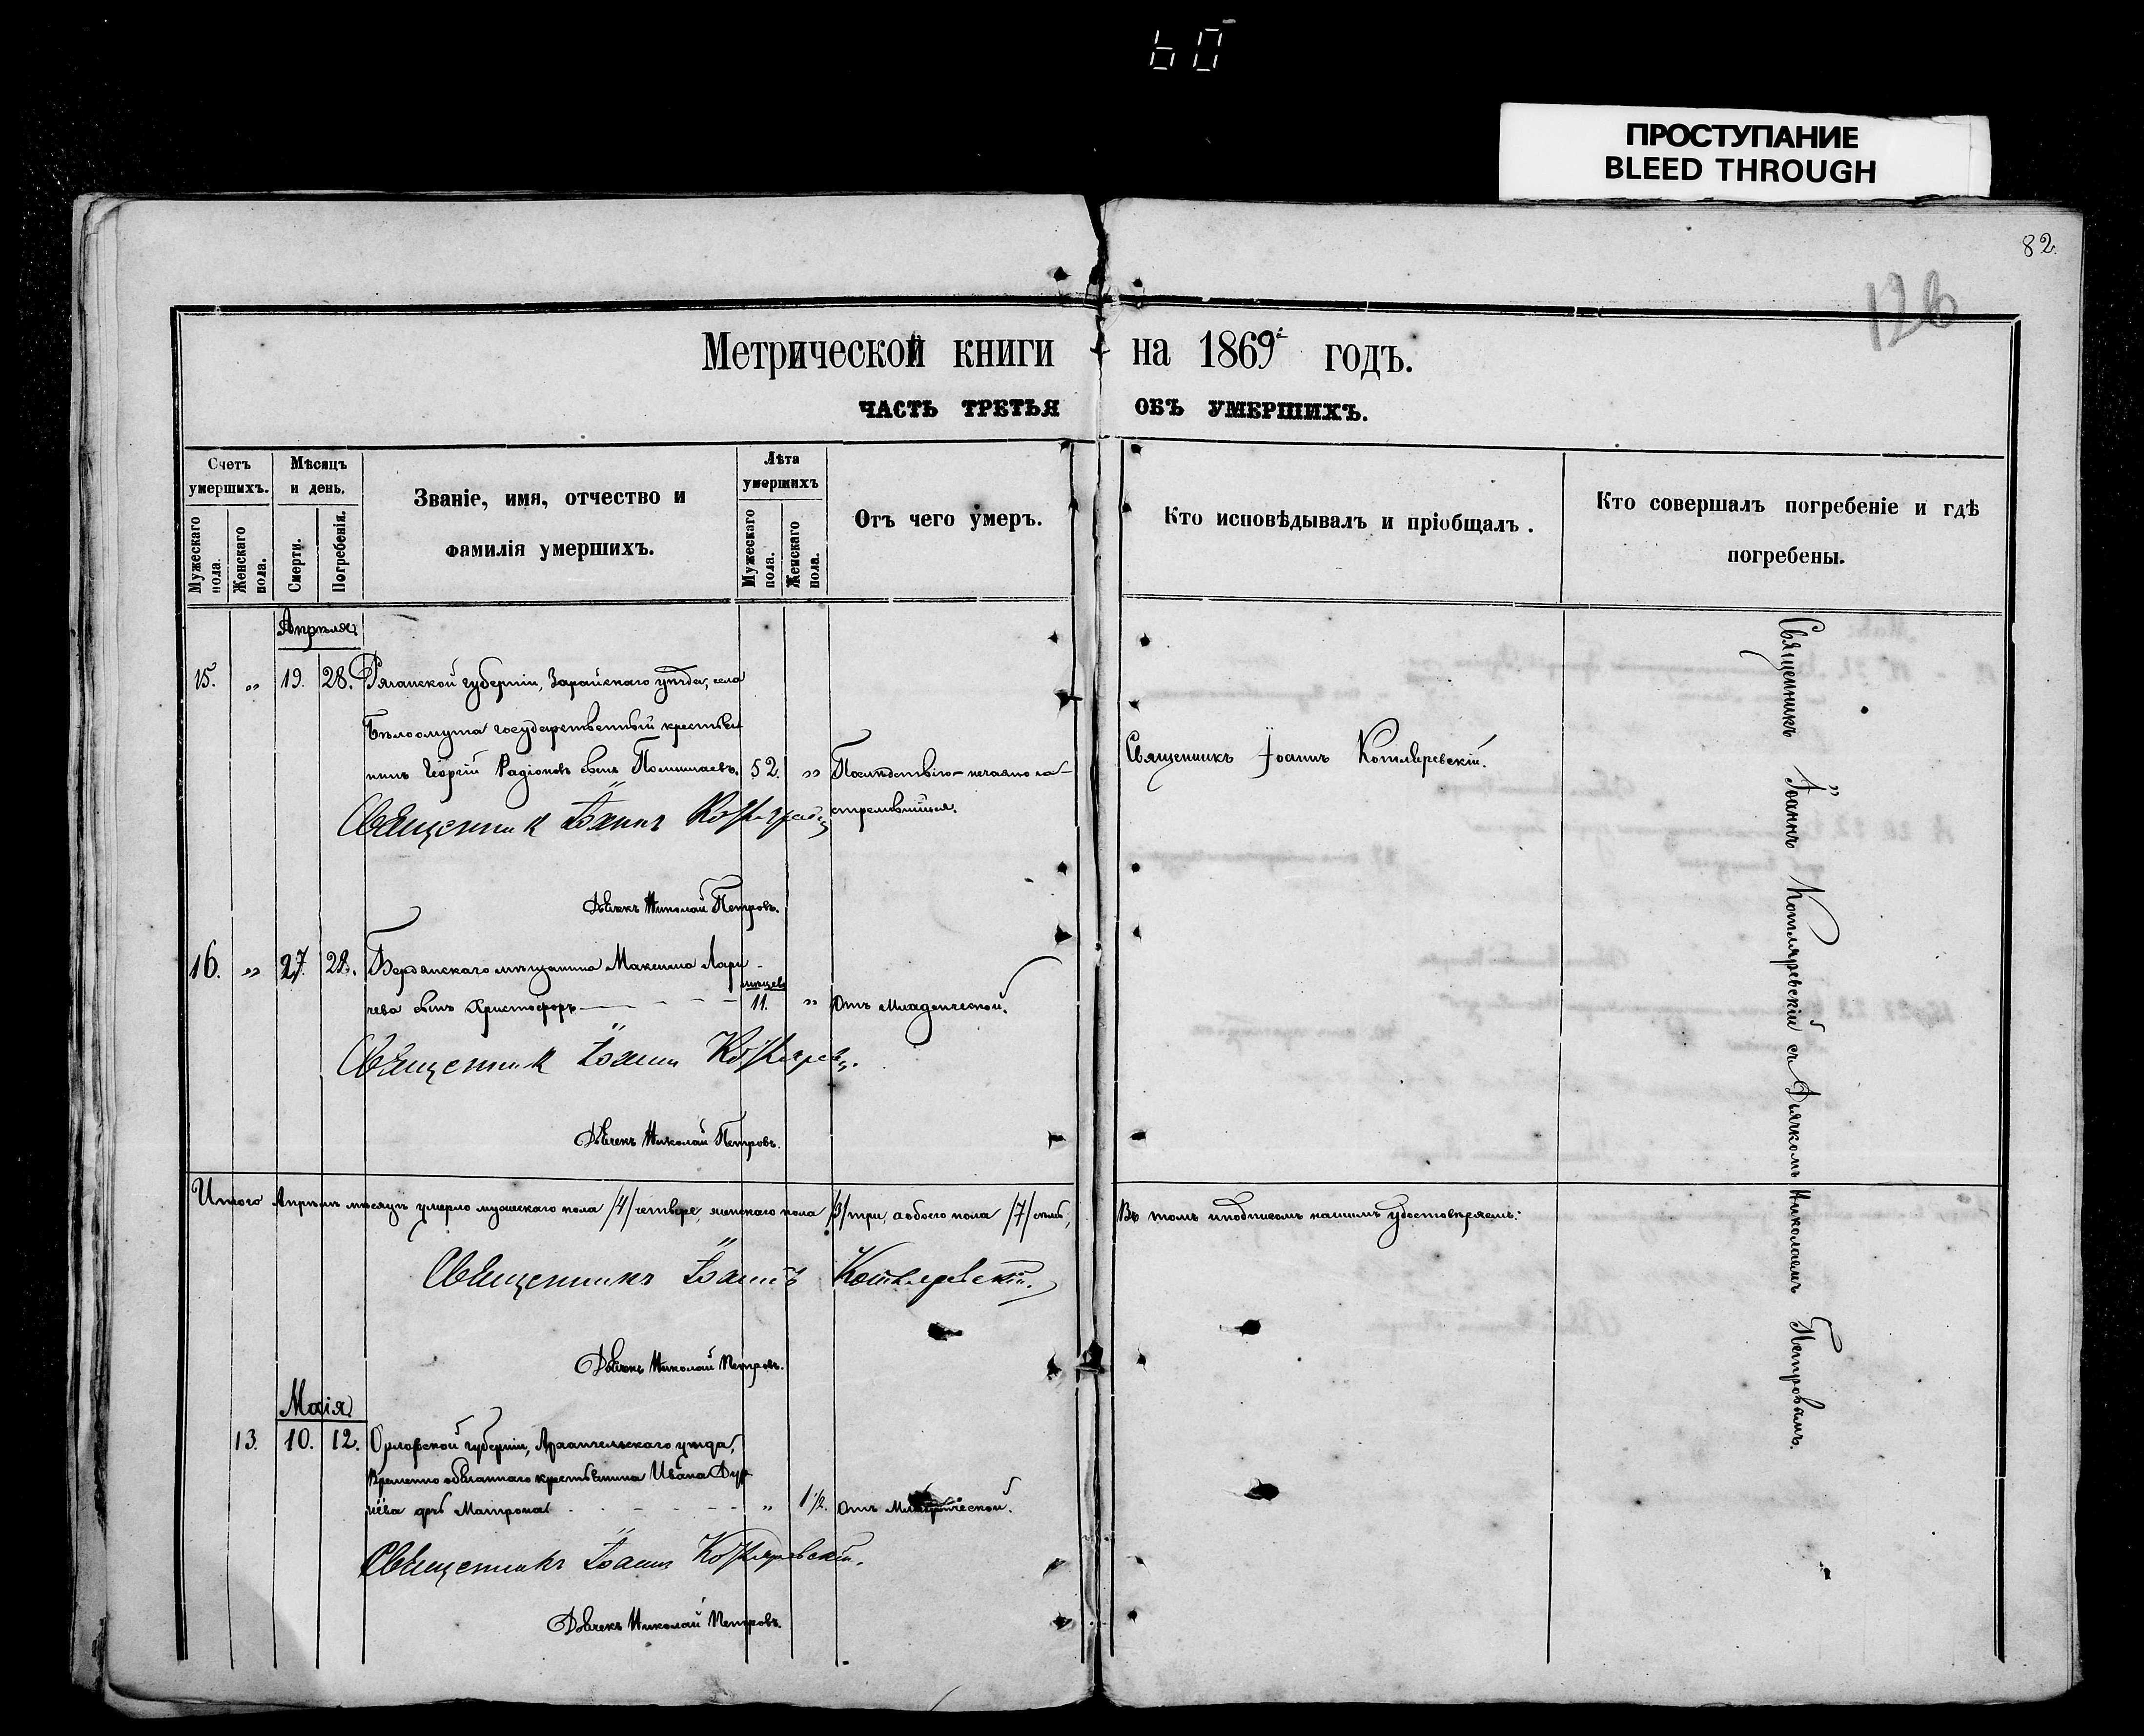 60
ПРОСТУПАНИЕ
BLEED THROUGH
82.
126
Метрической книги на 1869й годъ.
ЧАСТЬ ТРЕТЬЯ ОБЪ УМЕРШИХЪ.
Счетъ умершихъ.
Мужескаго пола.
Женскаго пола.
Мѣсяцъ и день.
Смерти.
Погребенія.
Званіе, имя, отчество и
фамилія умершихъ.
Лѣта умершихъ
Мужескаго пола.
Женскаго пола.
Отъ чего умеръ.
Кто исповѣдывалъ и пріобщалъ.
Кто совершалъ погребеніе и гдѣ
погребены.
Апрѣля
15. „ 19. 28. Рязанской губерніи, Зарайскаго уѣзда, села
Бѣлоомута государственный крестья
нинъ Георгій Радіоновъ сынъ 52. „
стрелившійся.
Священникъ Іоаннъ Котляревскій.
Священник Іоаннъ
Дьячекъ Николай Петровъ.
16. „ 27. 28. Бердянскаго мѣщанина Максима Лари
чева сынъ Христофоръ мѣсцевъ 11. „ Отъ Младенческой.
Священник Іоанн
Дьячекъ Николай Петровъ.
Итого Апрѣлѣ мѣсяцѣ умерло мужескаго пола /4/ четверо, женскаго пола /3/ три, а обоего пола /7/ семь,
Въ томъ и подписомъ нашимъ удостовѣряемъ:
Священникъ Іоаннъ Котляревскій.
Дьячекъ Николай Петровъ.
Маія
13. 10. 12. Орловской губерніи, Архангельскаго уѣзда,
Временно обязаннаго крестьянина Ивана Дур
нёва дочь Матрона „ 1 1/2. Отъ Младенческой.
Священникъ Іоанн Котляревскій.
Дьячекъ Николай Петровъ.
Священникъ Іоаннъ Котляревскій съ Дьячкомъ Николаемъ Петровымъ.